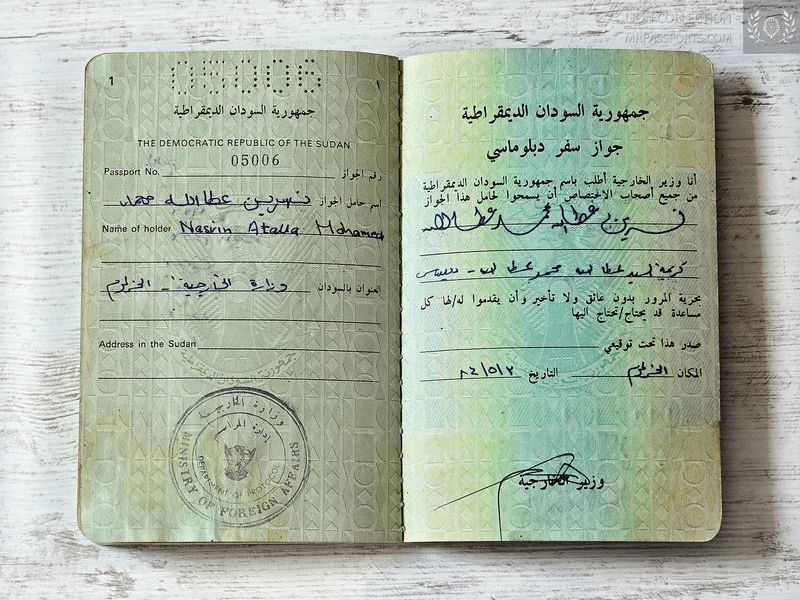 LION COLLECTION
MRPASSPORTS.COM
1
05006
١
جمهورية السودان الديمقراطية
THE DEMOCRATIC REPUBLIC OF THE SUDAN
05006
Passport No. رقم الجواز
اسم حامل الجواز نسرين عطا الله محمد
Name of holder Nasrin Atalla Mohamed
العنوان بالسودان وزارة الخارجية - الخرطوم
Address in the Sudan
وزارة الخارجية
إدارة المراسم
DEPARTMENT OF PROTOCOL
MINISTRY OF FOREIGN AFFAIRS
جمهورية السودان الديمقراطية
جواز سفر دبلوماسي
أنا وزير الخارجية أطلب باسم جمهورية السودان الديمقراطية
من جميع أصحاب الاختصاص أن يسمحوا لحامل هذا الجواز
كريمة السيد عطا الله محمد عطا الله
بحرية المرور بدون عائق ولا تأخير وأن يقدموا له/لها كل
مساعدة قد يحتاج/تحتاج اليها
صدر هذا تحت توقيعي
المكان الخرطوم التاريخ ٨٤/٥/٢
وزير الخارجية